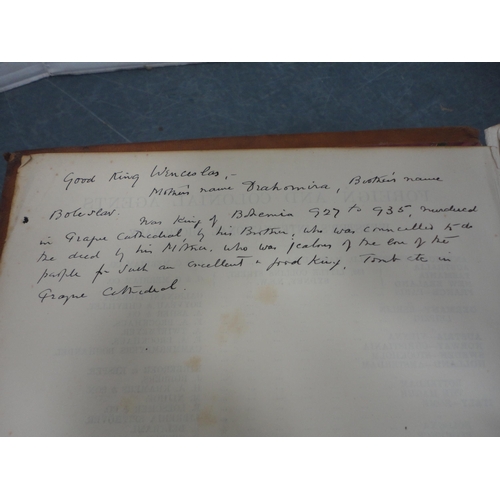 Good King Wenceslas,-
Mother's name Drahomira, Brother's name
Boleslav. Was King of Bohemia 927 to 935, murdered
in Prague Cathedral, by his Brother, who was councelled to do
the deed by his Mother, who was jealous of the love of the
people for such an excellent & good King. Tomb etc in
Prague Cathedral.